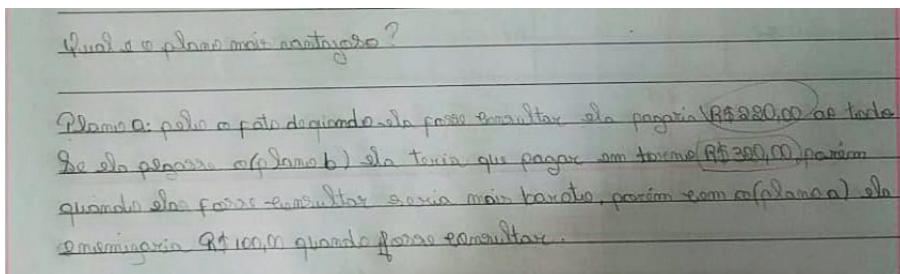 Qual é o plano mais vantajoso?
Plano a: pelo o fato de quando ela fosse consultar ela pagaria R$220,00 ao todo
Se ela pegasse o (plano b) ela teria que pagar em torno R$300,00) porém
quando ela fosse consultar seria mais barato, porém com o (plano a) ela
R$100,00 quando fosse consultar.